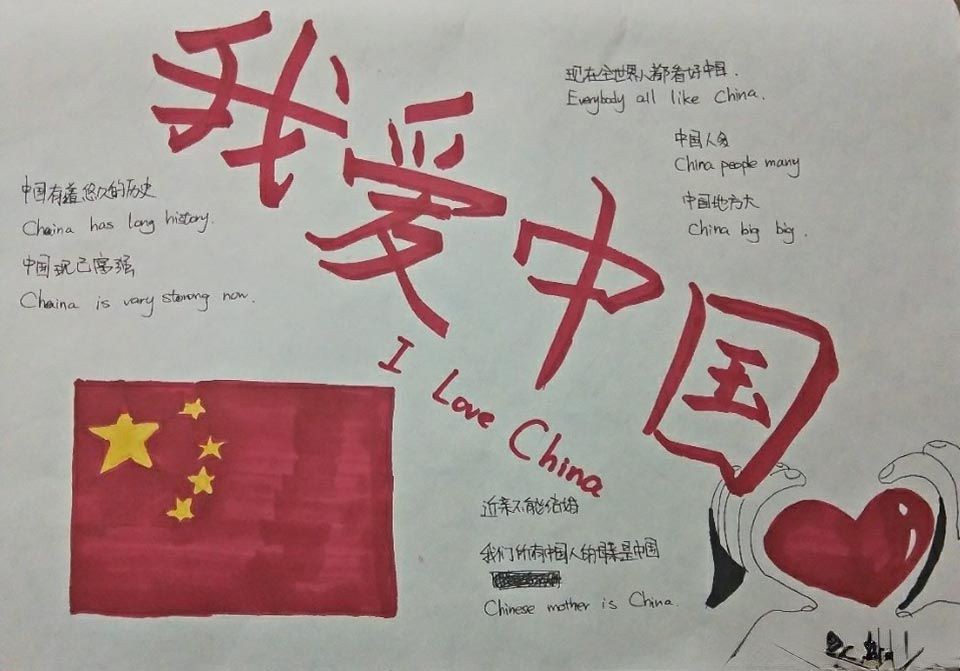 我爱中国
I Love China
现在全世界人都看好中国.
Everybody all like China.
中国人多
China people many
中国地方大
China big big.
中国有着悠久的历史
Chaina has long history.
中国现已富强
Chaina is vary storong now.
近亲不能结婚
我们所有中国人的母亲是中国
Chinese mother is China.